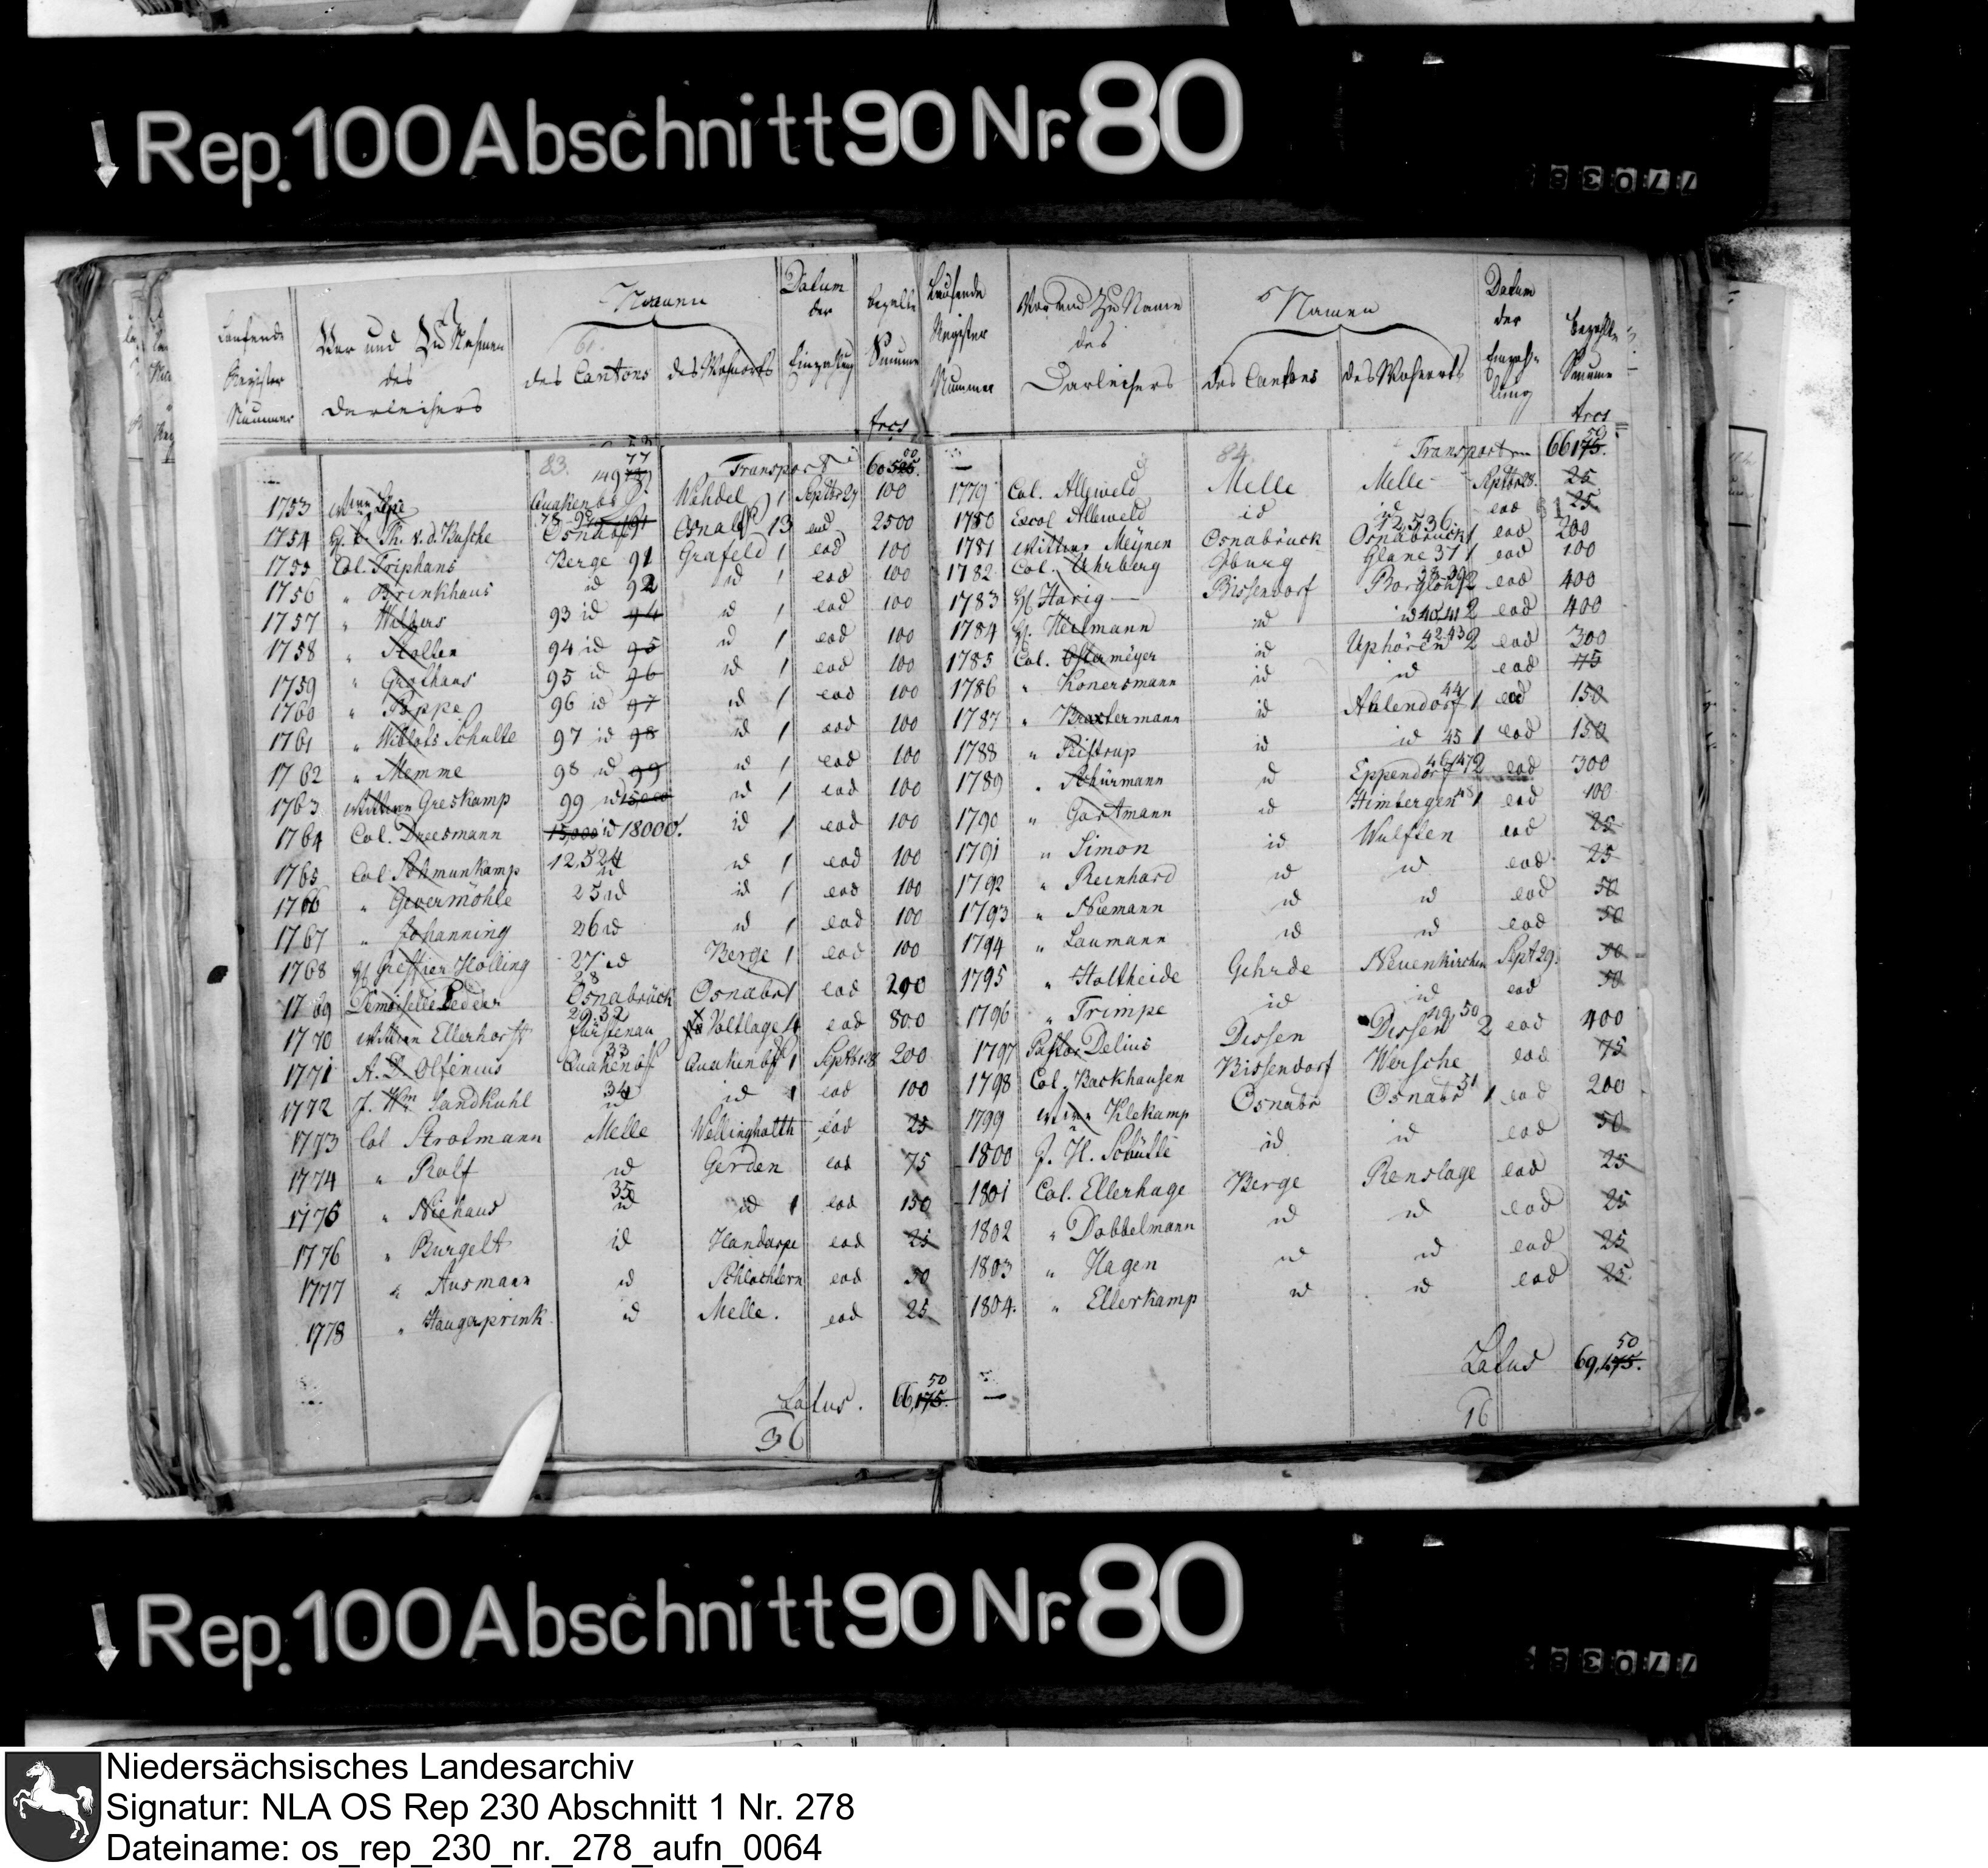 Rep. 100 Abschnitt 90 Nr. 80
Laufende Register Nummer
Vor und Zu Nahmen des Darleihers
Namen
des Cantons
des Wohnorts
Datum der Einzahlung
bezalte Summe
frcs
Laufende Register Nummer
Vor und Zu Name des Darleihers
Namen
des Cantons
des Wohnorts
Datum der Einzahlung
Bezahlte Summe
frcs
83. 77 Transport 60 525. 00
1753 Quakenb Wehdel 1 Septbr 27 100
1754 v. d. Busche Osnabr Osnabr 13 eod 2500
1755 Col. Triphans Berge 91 Grafeld 1 eod 100
1756 " Brinkhaus id 92 id 1 eod 100
1757 " Wilkers 93 id 94 id 1 eod 100
1758 " Stolten 94 id 95 id 1 eod 100
1759 " Grothaus 95 id 96 id 1 eod 100
1760 " Poppe 96 id 97 id 1 eod 100
1761 " Schulte 97 id 98 id 1 eod 100
1762 " Memme 98 id 99 id 1 eod 100
1763 Greskamp 99 id 15000 id 1 eod 100
1764 Col. Dreesmann 15,000 id 18000. id 1 eod 100
1765 Col 12,524 id id 1 eod 100
1766 " Givermöhle 25 id id 1 eod 100
1767 " Johanning 26 id id 1 eod 100
1768 Greffier Holling 27 id Berge 1 eod 100
1769 Demoiselle 28 Osnabrück Osnabr 1 eod 200
1770 Ellerhorst 29.32 Fürstenau Voltlage 4 eod 800
1771 A. Olfenius 33 Quakenb Quakenb 1 Septbr 28 200
1772 J. Wm Sandkuhl 34 id id 1 eod 100
1773 Col Strotmann Melle Wellingholth eod 25
1774 " Rolf id Gerden eod 75
1775 " Niehaus 35 id id 1 eod 150
1776 " Burgelt id Handarpe eod 25
1777 " Ausmann id Schlochtern eod 50
1778 " Haugaprink id Melle. eod 25
Latus. 66,175. 50
36
84. Transport 66175. 50
1779 Col. Alleweld Melle Melle Septbr 28. 25
1780 Alleweld id id eod 25
1781 Meijnen Osnabrück 12536 Osnabrück 1 eod 200
1782 Col. Uhrberg Iburg Glane 37 1 eod 100
1783 Harig Bissendorf 38 39 Borgloh 2 eod 400
1784 Heilmann id id 40,41 2 eod 400
1785 Col. Ostermeÿer id Uphören 42 43 2 eod 300
1786 " Konersmann id id eod 75
1787 " Braxtermann id Ahlendorf 44 1 eod 150
1788 " Ristrup id id 45 1 eod 150
1789 " Schürmann id Eppendorf 46,47 2 eod 300
1790 " Gartmann id Himbergen 48 1 eod 100
1791 " Simon id Wulften eod 25
1792 " Reinhard id id eod 25
1793 " Niemann id id eod 50
1794 " Laumann id id eod 50
1795 " Holtheide Gehrde Neuenkirchen Sept 29. 50
1796 " Trimpe id id eod 50
1797 Pastor Delius Dissen Dissen 49,50 2 eod 400
1798 Col. Backhausen Bissendorf Wersche eod 75
1799 Klekamp Osnabr Osnabr 51 1 eod 200
1800 J. H. Schütte id id eod 50
1801 Col. Ellerhage Berge Renslage eod 25
1802 " Dobbelmann id id eod 25
1803 " Hagen id id eod 25
1804. " Ellerkamp id id eod 25.
Latus 69,175. 50
16
Rep. 100 Abschnitt 90 Nr. 80
Niedersächsisches Landesarchiv
Signatur: NLA OS Rep 230 Abschnitt 1 Nr. 278
Dateiname: os_rep_230_nr._278_aufn_0064